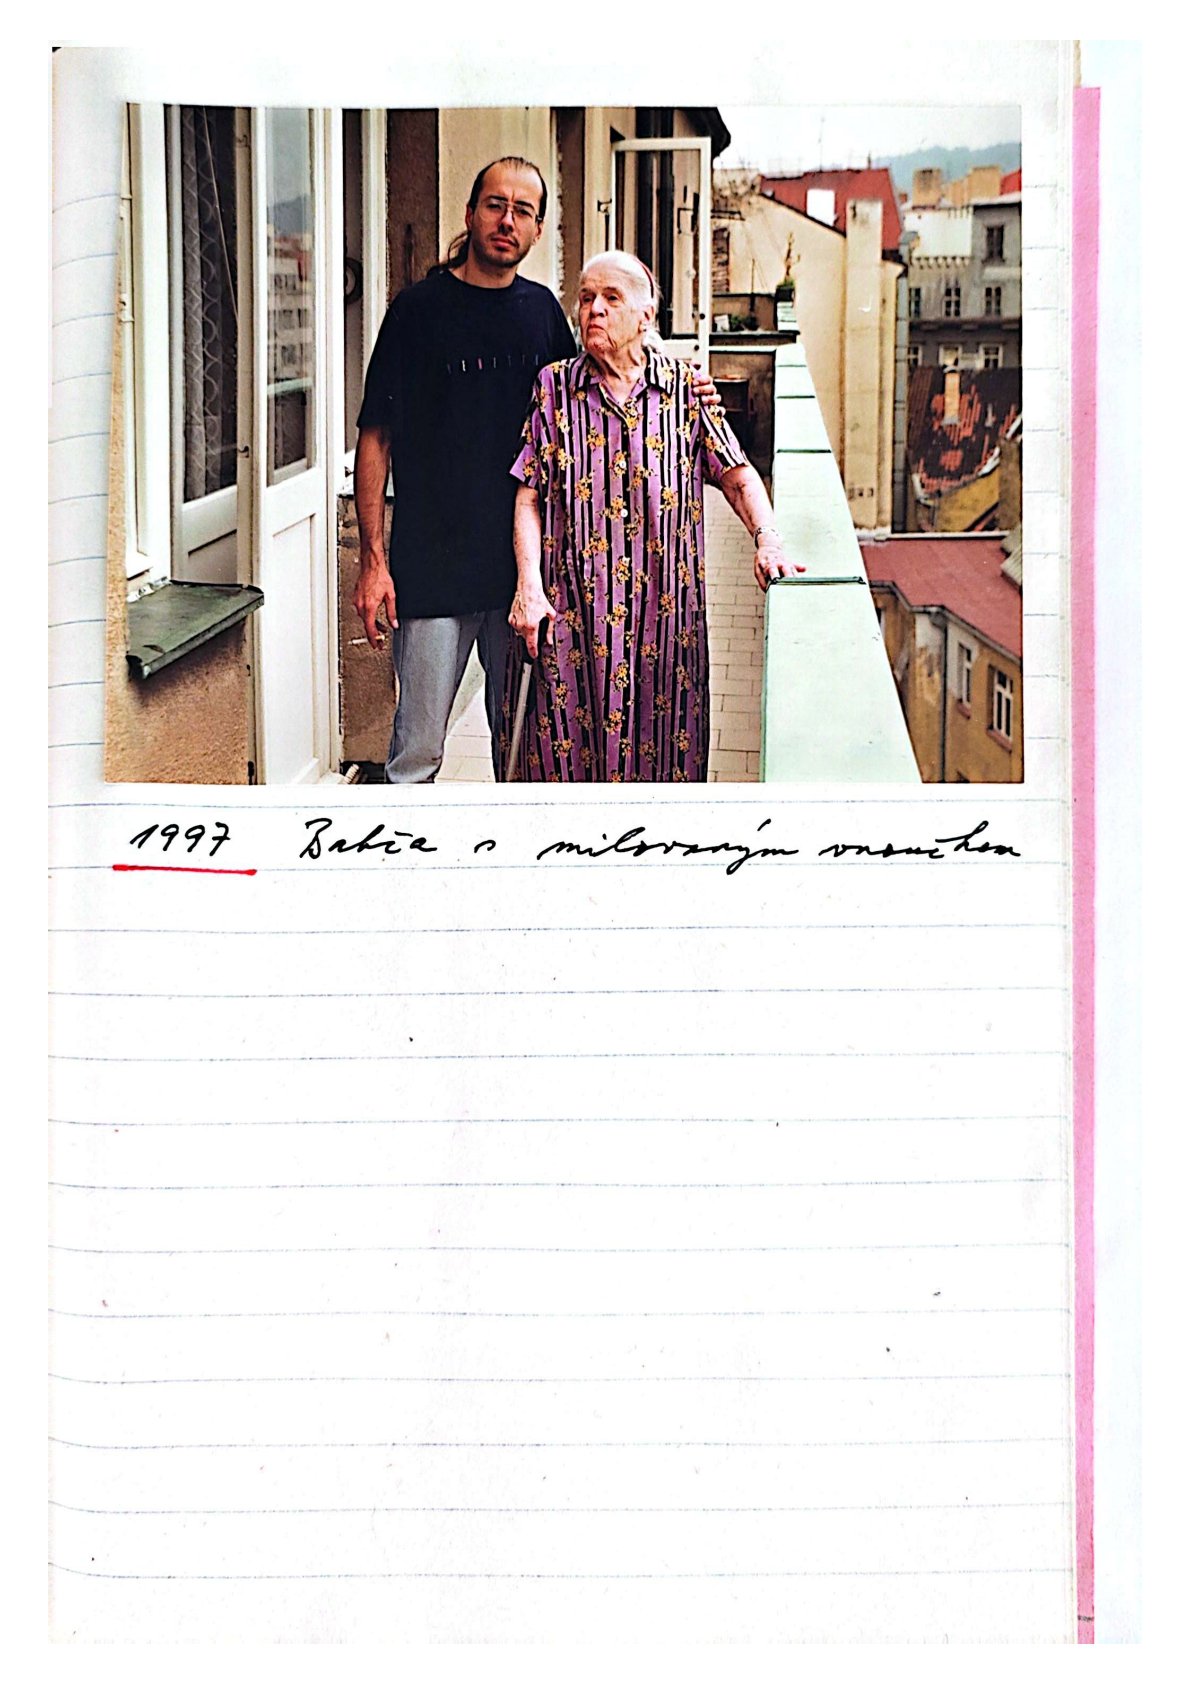 1997 Babča s milovaným vnoučkem